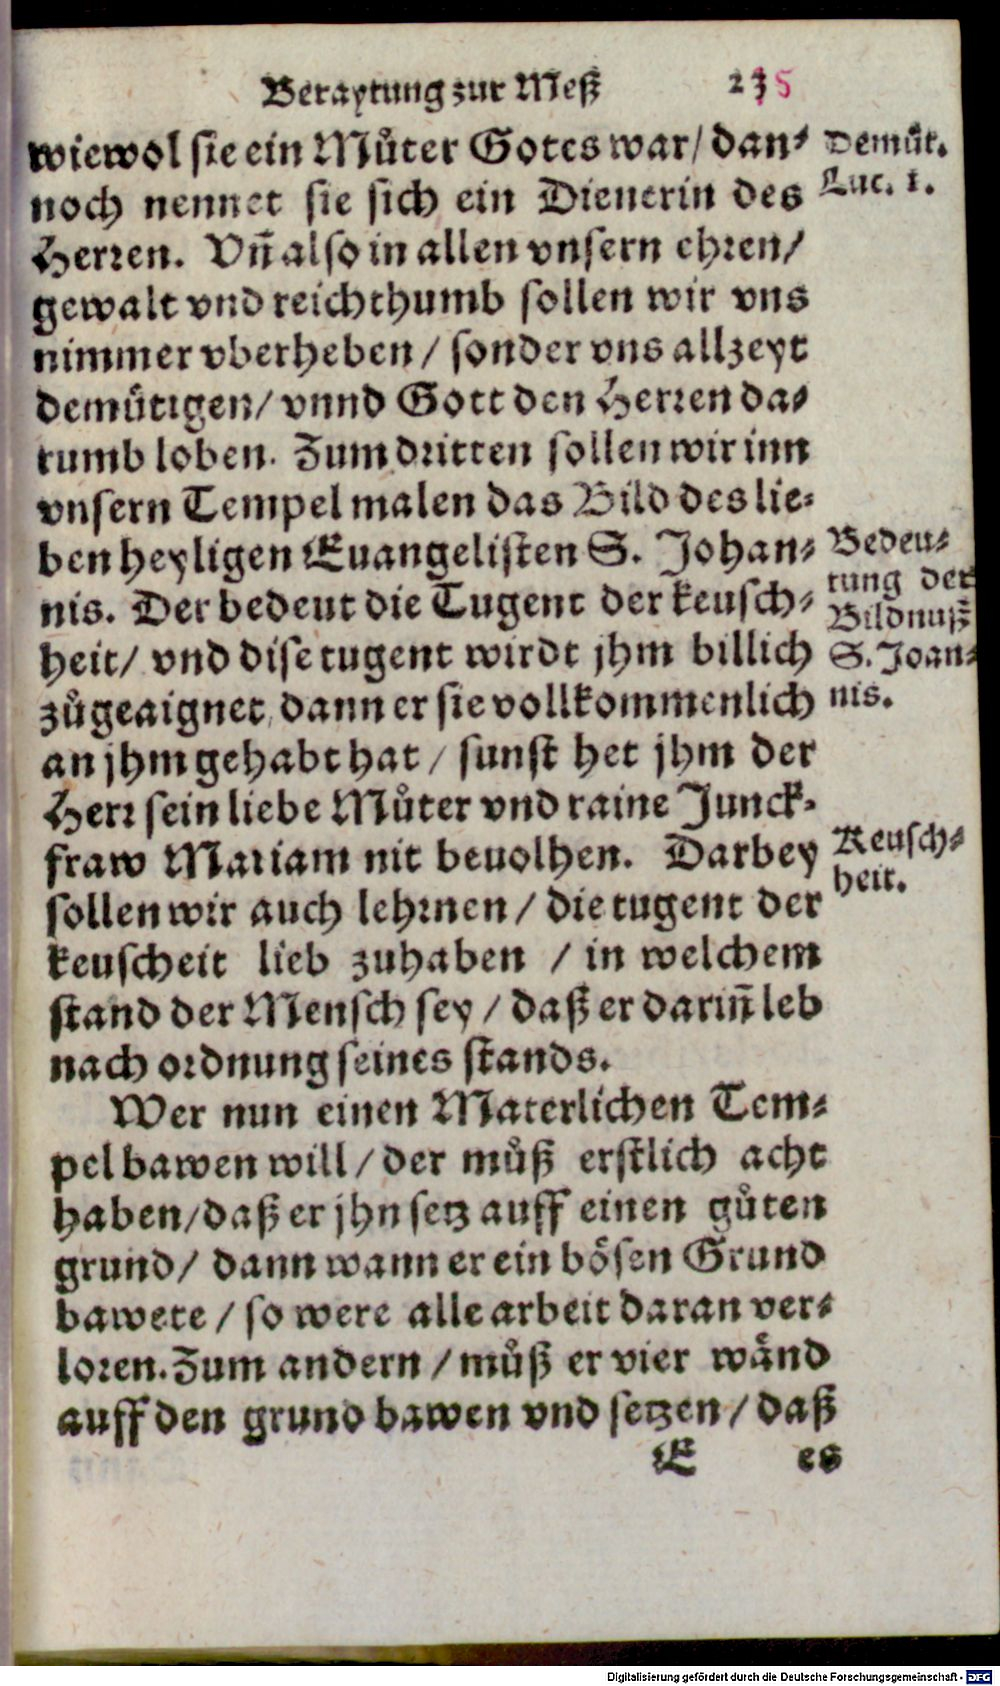 Beraytung zur Meß
wiewol sie ein Můter Gotes war/ dan⸗
noch nennet sie sich ein Dienerin des
Herꝛen. Vn̄ also in allen vnsern ehꝛen/
gewalt vnd reichthumb sollen wir vns
nimmer vberheben / sonder vns allzeyt
demütigen/ vnnd Gott den Herꝛen da⸗
rumb loben. Zum dꝛitten sollen wir inn
vnsern Tempel malen das Bild des lie⸗
ben heyligen Euangelisten S. Johan⸗
nis. Der bedeut die Tugent der keusch⸗
heit/ vnd dise tugent wirdt jhm billich
zůgeaignet, dann er sie vollkommenlich
an jhm gehabt hat / sunst het jhm der
Herꝛ sein liebe Můter vnd raine Junck⸗
fraw Mariam nit beuolhen. Darbey
sollen wir auch lehꝛnen / die tugent der
keuscheit lieb zuhaben / in welchem
stand der Mensch sey / daß er darin̄ leb
nach oꝛdnung seines stands.
Wer nun einen Materlichen Tem⸗
pel bawen will / der můß erstlich acht
haben/daß er jhn setz auff einen gůten
grund/ dann wann er ein bösen Grund
bawete / so were alle arbeit daran ver⸗
loꝛen. Zum andern / můß er vier wänd
auff den grund bawen vnd setzen / daß
E es
Demůt.
Luc. 1.
Bedeu⸗
tung der
Bildnuß
S. Joan⸗
nis.
Keusch⸗
heit.
Digitalisierung gefördert durch die Deutsche Forschungsgemeinschaft - DFG